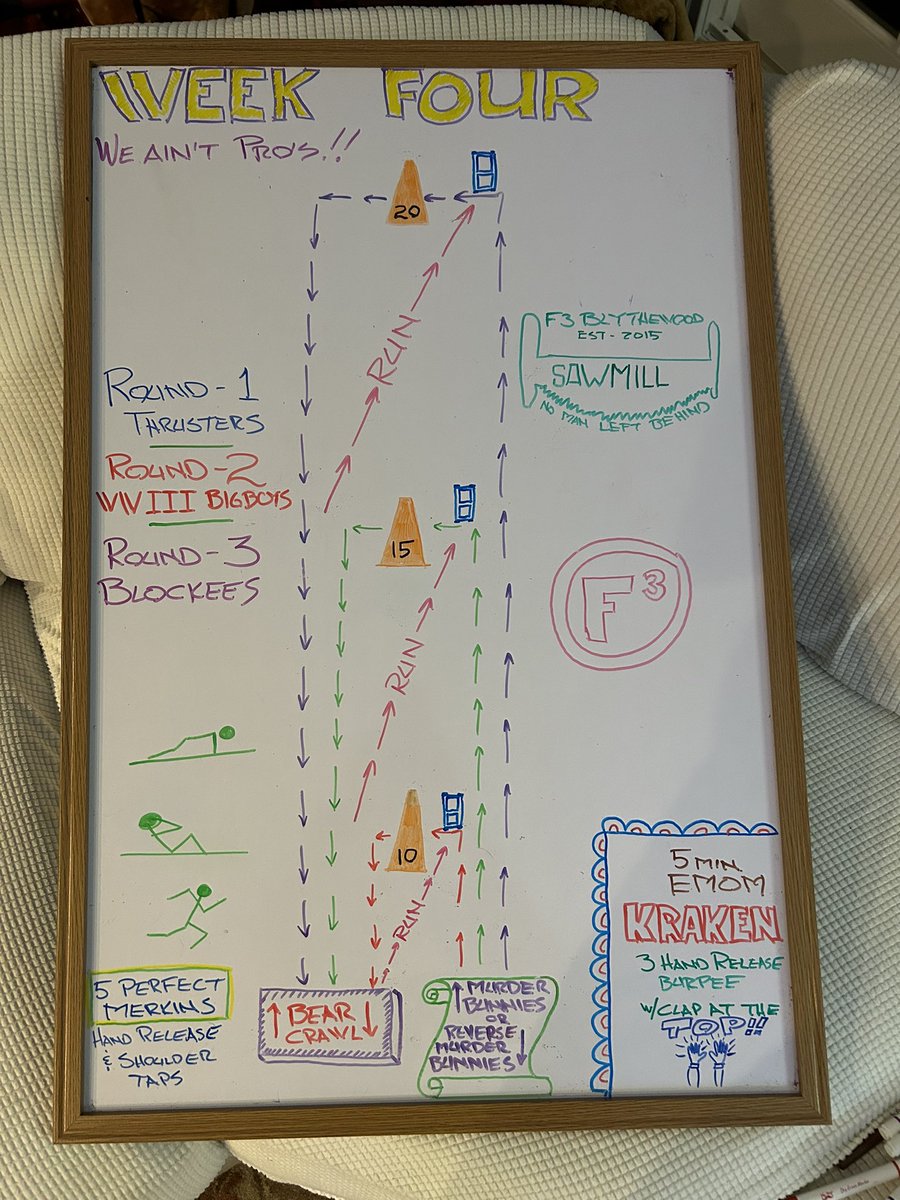 WEEK FOUR
WE AIN'T PRO'S.!!
20
RUN
F3 BLYTHEWOOD
EST - 2015
SAWMILL
NO MAN LEFT BEHIND
ROUND - 1
THRUSTERS
ROUND - 2
WWIII BIGBOYS
ROUND - 3
BLOCKEES
15
RUN
F3
10
RUN
5 PERFECT
MERKINS
HAND RELEASE
& SHOULDER
TAPS
BEAR
CRAWL
MURDER
BUNNIES
OR
REVERSE
MURDER
BUNNIES
5 MIN
EMOM
KRAKEN
3 HAND RELEASE
BURPEE
W/CLAP AT THE
TOP!!